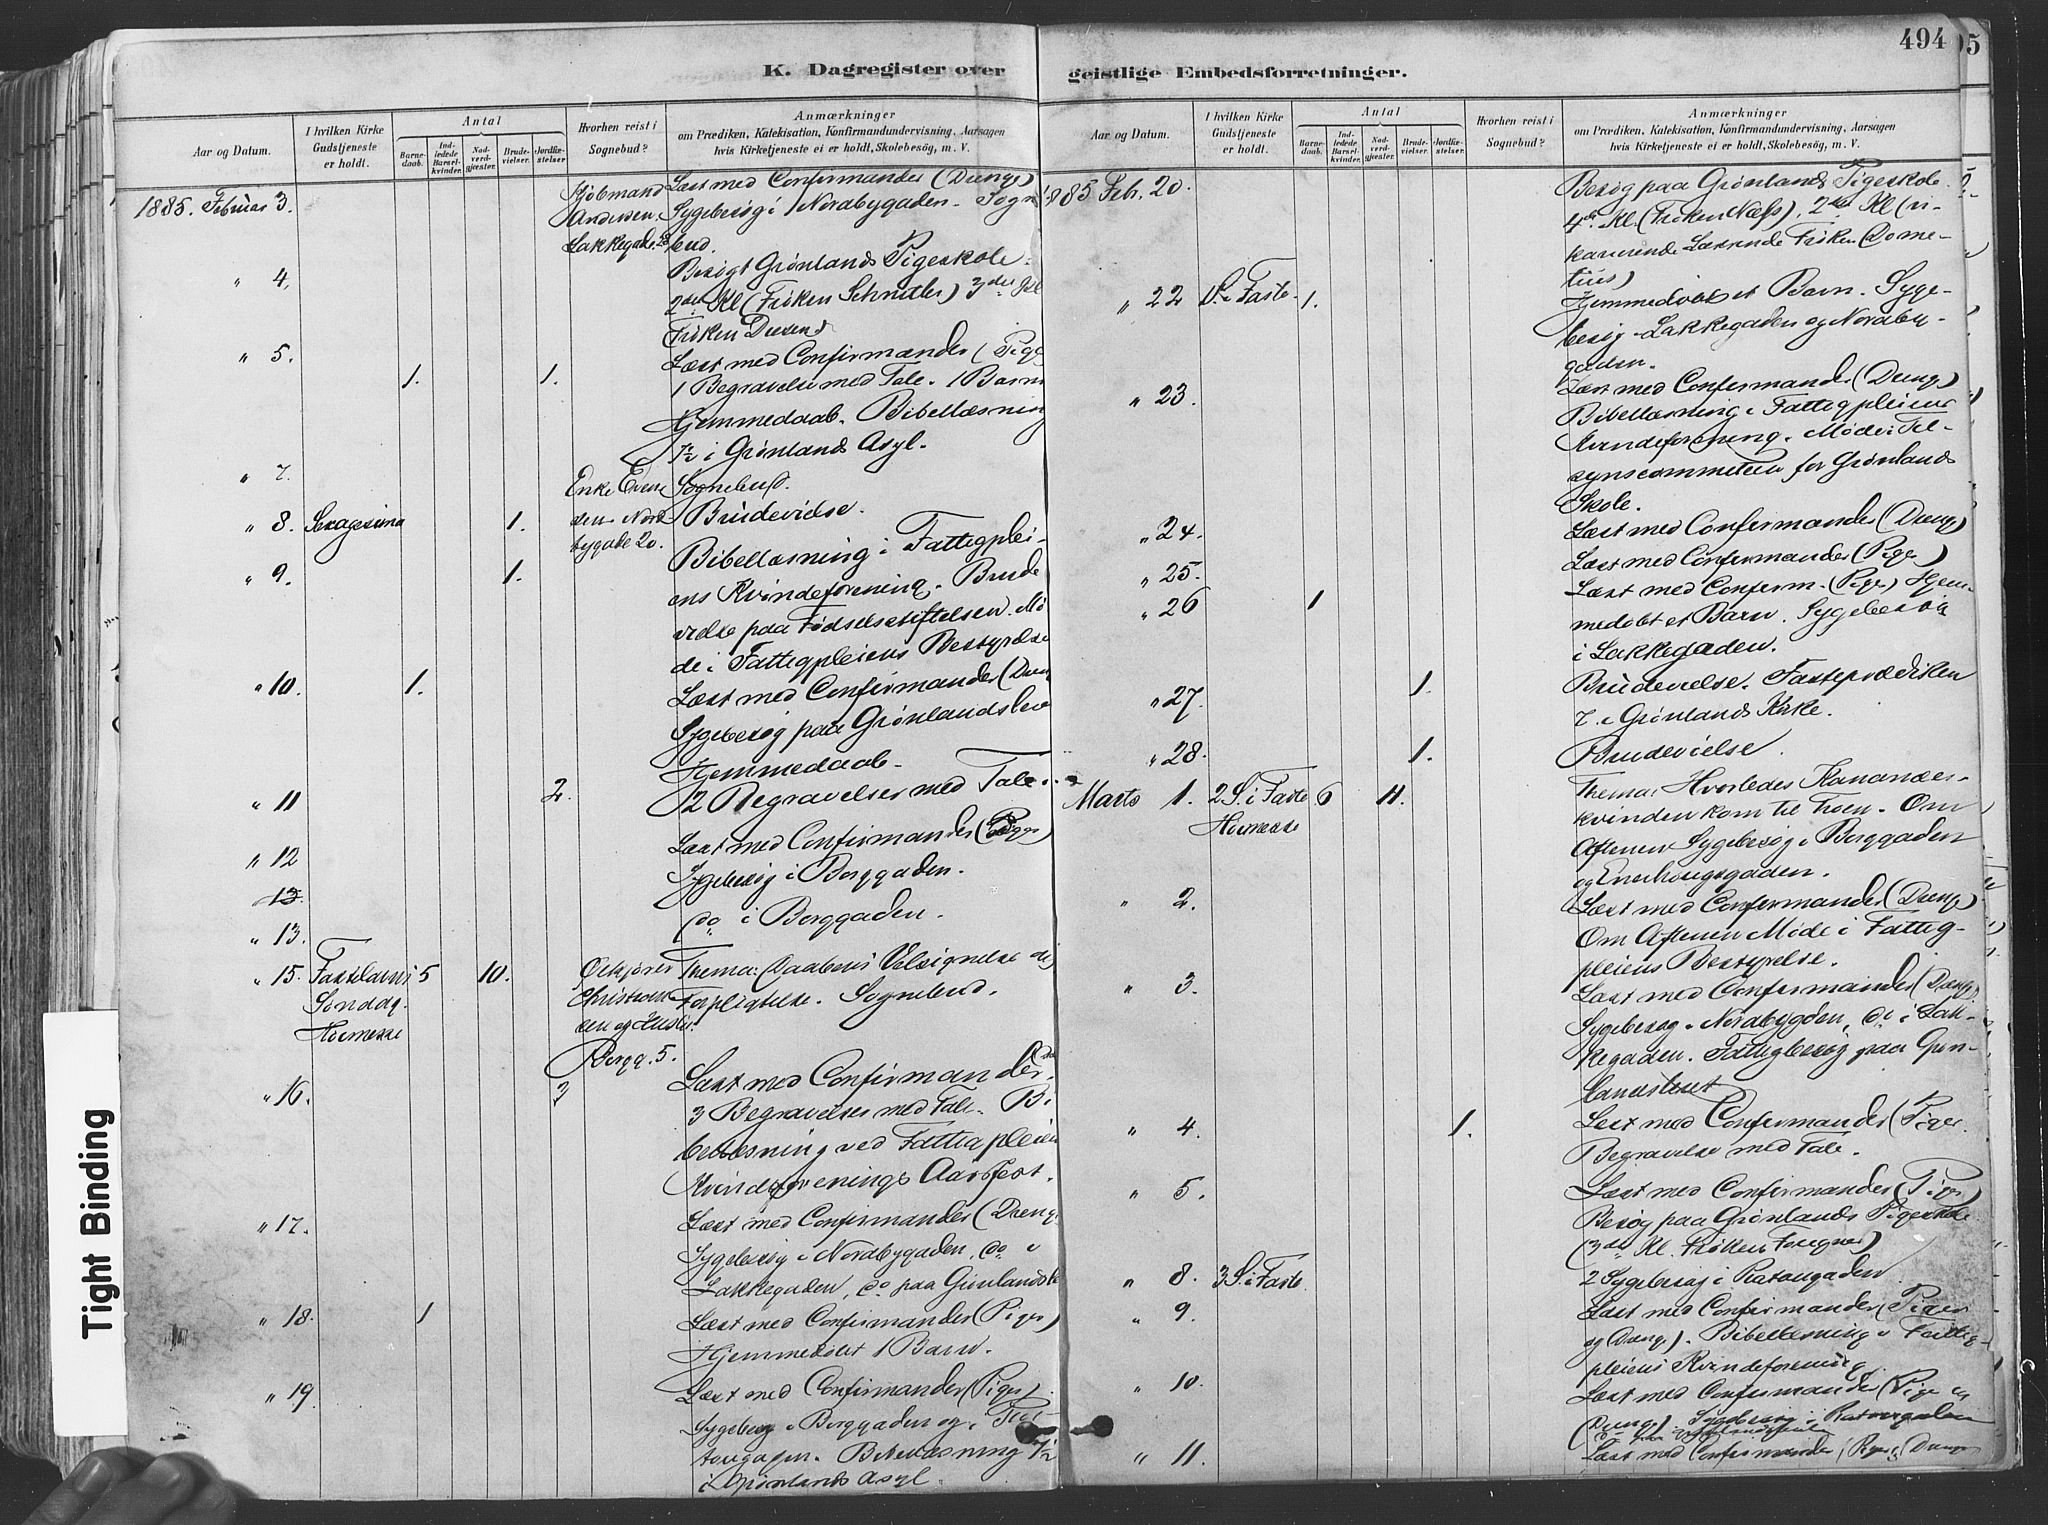 494
5
K. Dagregister over
geistlige Embedsforretninger.
Aar og Datum.
I hvilken Kirke Gudstjeneste er holdt.
Antal
Barnedaab.
Indledede Barselkvinder.
Nadverdgjester.
Brudevielser.
Jordfæstelser.
Hvorhen reist i Sognebud?
Anmærkninger
om Prædiken, Katekisation, Konfirmandundervisning, Aarsagen
hvis Kirketjeneste ei er holdt, Skolebesög, m. V.
1885. Februar 3. Andersen, Lakkegade 28 Læst med Confirmander (Drenge)
Sygebesøg i Nordbygaden. Sogne
bud.
" 4, Besøgt Grønlands Pigeskole
2den Kl (Frøken Schnitler) 3die Kl
Frøken
" 5. 1. 1. Læst med Confirmander (Pige
1 Begravelse med Tale. 1 Barn
Hjemmedaab. Bibellæsning
7½ i Grønlands Asyl.
" 7. Enke Sognebud.
" 8. Sexagesima 1. Nordbygade 20. Brudevielse.
" 9. 1. Bibellæsning i Fattigplei-
ens Kvindeforening. Brude
vielse paa Fødselsstiftelsen. Mø
de i Fattigpleiens Bestyrelse
" 10. 1. Læst med Confirmander (Dren
Sygebesøg paa Grønlandsler
Hjemmedaab.
" 11 2. 2 Begravelser med Tale
Læst med Confirmander (Piger)
" 12 Sygebesøg i Borggaden.
13.
" 13. do i Borggaden.
" 15. Fastelavns Søndag. Høimesse 5 10. Christian
sen og Hustru. Borgg. 5. Thema: Daabens Velsignelse og
Forpligtelse. Sognebud.
" 16. 3 Læst med Confirmander.
3 Begravelser med Tale. Bi
bellæsning ved Fattigpleien
Kvindeforenings Aarsfest.
" 17. Læst med Confirmander (Dreng.
Sygebesøg i Nordbygaden, do i
Lakkegaden, do paa Grønlandsle
" 18. 1 Læst med Confirmander (Piger)
Hjemmedøbt 1 Barn.
" 19 Læst med Confirmander (Piger)
Sygebesøg i Borggaden og i
Bibellæsning 7½
i Grønlands Asyl.
Aar og Datum.
I hvilken Kirke Gudstjeneste er holdt.
Antal
Barnedaab.
Indledede Barselkvinder.
Nadverdgjester.
Brudevielser.
Jordfæstelser.
Hvorhen reist i Sognebud?
Anmærkninger
om Prædiken, Katekisation, Konfirmandundervisning, Aarsagen
hvis Kirketjeneste ei er holdt, Skolebesög, m. V.
1885 Feb. 20. Besøg paa Grønlands Pigeskole.
4de Kl. (Frøken Næss), 2den Kl (vi-
karierende Lærerinde Frøken Dome-
tius)
" 22 S. i Faste. 1. Hjemmedøbt et Barn. Syge-
besøg i Lakkegaden og Nordby-
gaden.
" 23. Læst med Confirmander (Dreng.)
Bibellæsning i Fattigpleiens
Kvindeforening. Møde i Til-
synscommiteen for Grønlands
Skole.
" 24. Læst med Confirmander (Dreng)
" 25. Læst med Confirmander (Piger)
" 26 1 Læst med Confirm. (Piger) Hjem-
medøbt et Barn. Sygebesøg
i Lakkegaden.
" 27. 1. Brudevielse. Fasteprædiken
7. i Grønlands Kirke.
" 28. 1. Brudevielse.
Marts 1. 2 S. i Faste Høimesse 6 11. Thema: Hvorledes Kananæer-
kvinden kom til Troen. Om
Aftenen Sygebesøg i Borggaden
og Enerhougsgaden.
" 2. Læst med Confirmander (Dreng)
Om Aftenen Møde i Fattig-
pleiens Bestyrelse.
" 3. Læst med Confirmander (Dreng)
Sygebesøg i Nordbygden, do i Lak-
kegaden. Fattigbesøg paa Grøn-
landsleret
" 4. 1. Læst med Confirmander (Piger.
Begravelse med Tale.
" 5. Læst med Confirmander (Piger)
Besøg paa Grønlands Pigeskole
(3die Kl. Frøken
" 8. 3 S. i Faste. 2 Sygebesøg i
" 9. Læst med Confirmander (Piger
og Dreng). Bibellæsning i Fattig-
pleiens Kvindeforening.
" 10. Læst med Confirmander (Pige og
Dreng) Sygebesøg i
" 11. Læst med Confirmander (Piger & Dreng
Tight Binding